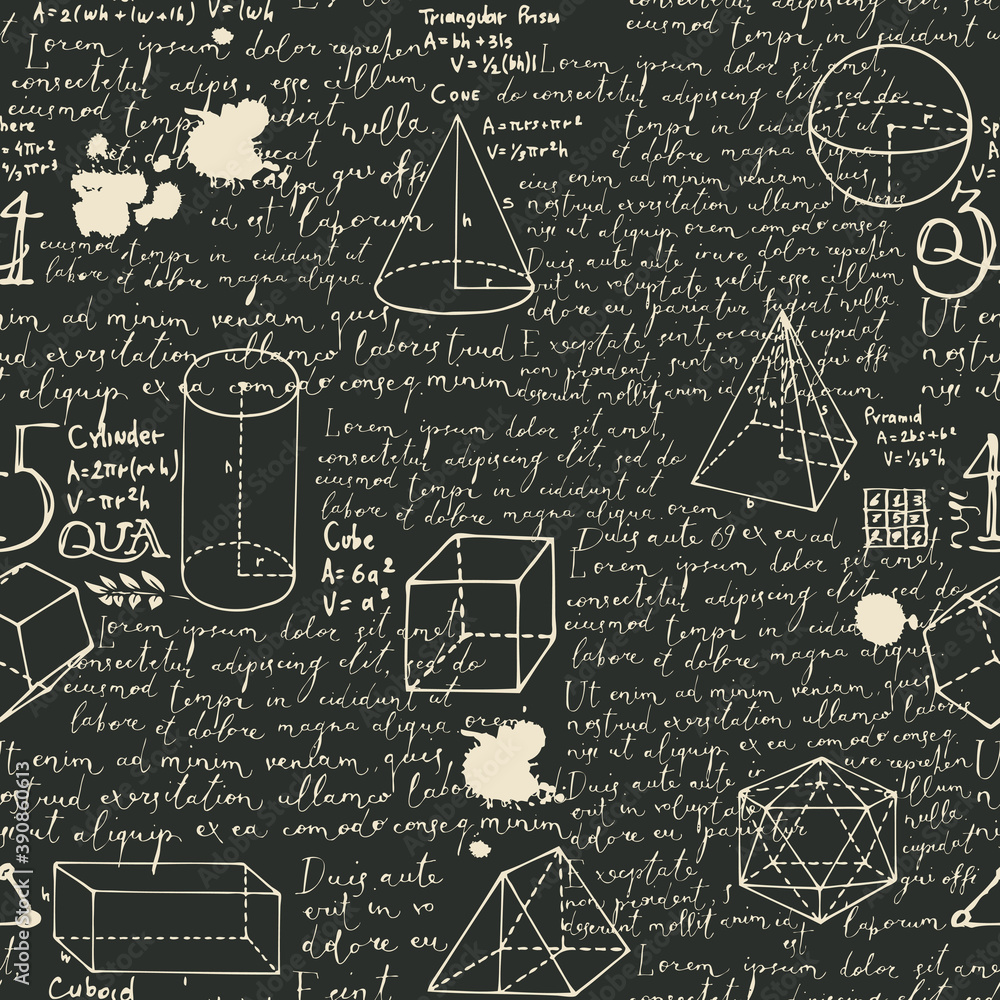 A=2(wh+lw+lh) V=lwh
Lorem ipsum dolor reprehen
consectetur adipis. esse cillum
eiusmod tempi fugiat
nulla.
here
= 4πr2
4/3πr3
et do
culpa qui offi
id est laborum
4
eiusmod tempi in cididunt ut
labore et dolore magna aliqua.
Triangular Prism
A=bh+3ls
V=½(bh)l
CONE
A=πrs+πr²
V=⅓πr²h
h
s
r
eiusmod tempi in cididunt ut
Lorem ipsum dolor sit amet,
do consectetur adipiscing elit, sed do
tempi in cididunt ut
et dolore magna aliqua
enim ad minim veniam, quis
nostrud exersitation ullamco laboris
nisi ut aliquip orem comodo conseq.
Duis aute aute irure dolor reprehen
erit in voluptate velit esse cillum
dolore eu pariatur fugiat nulla.
Exceptate sint occaecat cupidat
non proident, sunt in culpa qui offi
deserunt mollit anim id est laborum.
r
Sp
A=
V=
3
Q
Ut enim
nostru
nisi ut
enim ad minim veniam, quis
ud exersitation ullamco laboris trud
aliquip ex ea comodo conseq. minim
5
Cylinder
A=2πr(r+h)
V-πr²h
QUA
h
r
Lorem ipsum dolor sit amet,
consectetur adipiscing elit, sed do
tempi in cididunt ut
labore et dolore magna aliqua. orem
h
s
b
b
Pyramid
A=2bs+b²
V=⅓b²h
6 1 3
7 5 3
2 9 4
1
Cube
A=6a²
V=a³
Duis aute 69 ex ea ad
Lorem ipsum dolor sit amet,
consectetur adipiscing elit, sed do
eiusmod tempi in cididunt
labore et dolore magna aliqua.
Ut enim ad minim veniam, quis
nostrud exersitation ullamco laboris
nisi ut aliquip ex ea comodo conseq.
Duis aute aute ir
ure reprehen
erit in voluptate
illum
dolore eu pariatur
nulla.
Exceptate
cupidat
non proident,
qui offi
deserunt mollit anim id
laborum
est
Lorem ipsum dolor sit amet,
consectetur adipiscing elit, sed do
Lorem ipsum dolor sit amet
consectetur adipiscing elit, sed do
eiusmod tempi in cididunt ut
labore et dolore magna aliqua orem
Ut enim ad minim veniam, quis
nostrud exersitation ullamco laboris
nisi ut aliquip ex ea comodo conseq. minim
h
w
Cuboid
Duis aute
erit in vo
dolore eu
E sint
Adobe Stock
#390860613